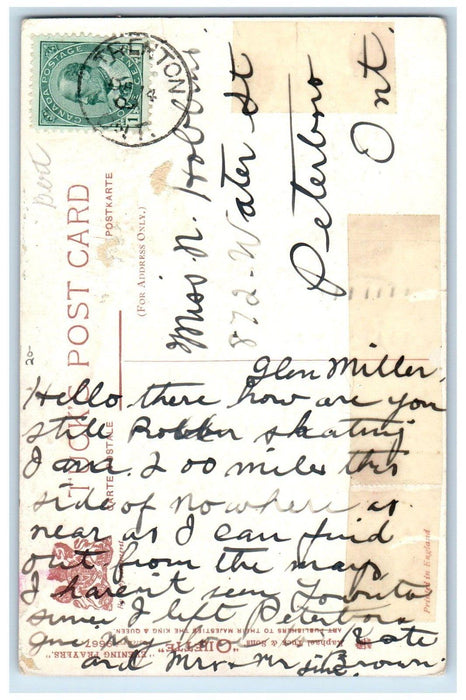 CANADA POSTAGE
TRENTON
TUCK'S POST CARD
CARTE POSTALE
POSTKARTE
(FOR ADDRESS ONLY.)
Miss N. Hobbins
872 - Water St
Peterboro
Ont.
20-
Glen Miller,
Hello there how are you
still Roller skating
I am 200 miles this
side of nowhere as
near as I can find
out from the map.
I haven't seen Toronto
since I left Peterboro
Give my
and Mrs + Mr Brown.
Raphael Tuck & Sons
"OILETTE"
ART PUBLISHERS TO THEIR MAJESTIES THE KING & QUEEN.
"EVENING PRAYERS."
Printed in England